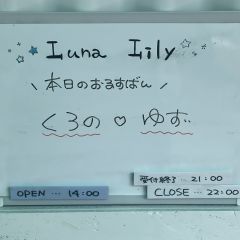 Luna Lily
\ 本日のおるすばん /
くろの ♡ ゆず
受付終了 … 21:00
OPEN … 14:00
CLOSE … 22:00